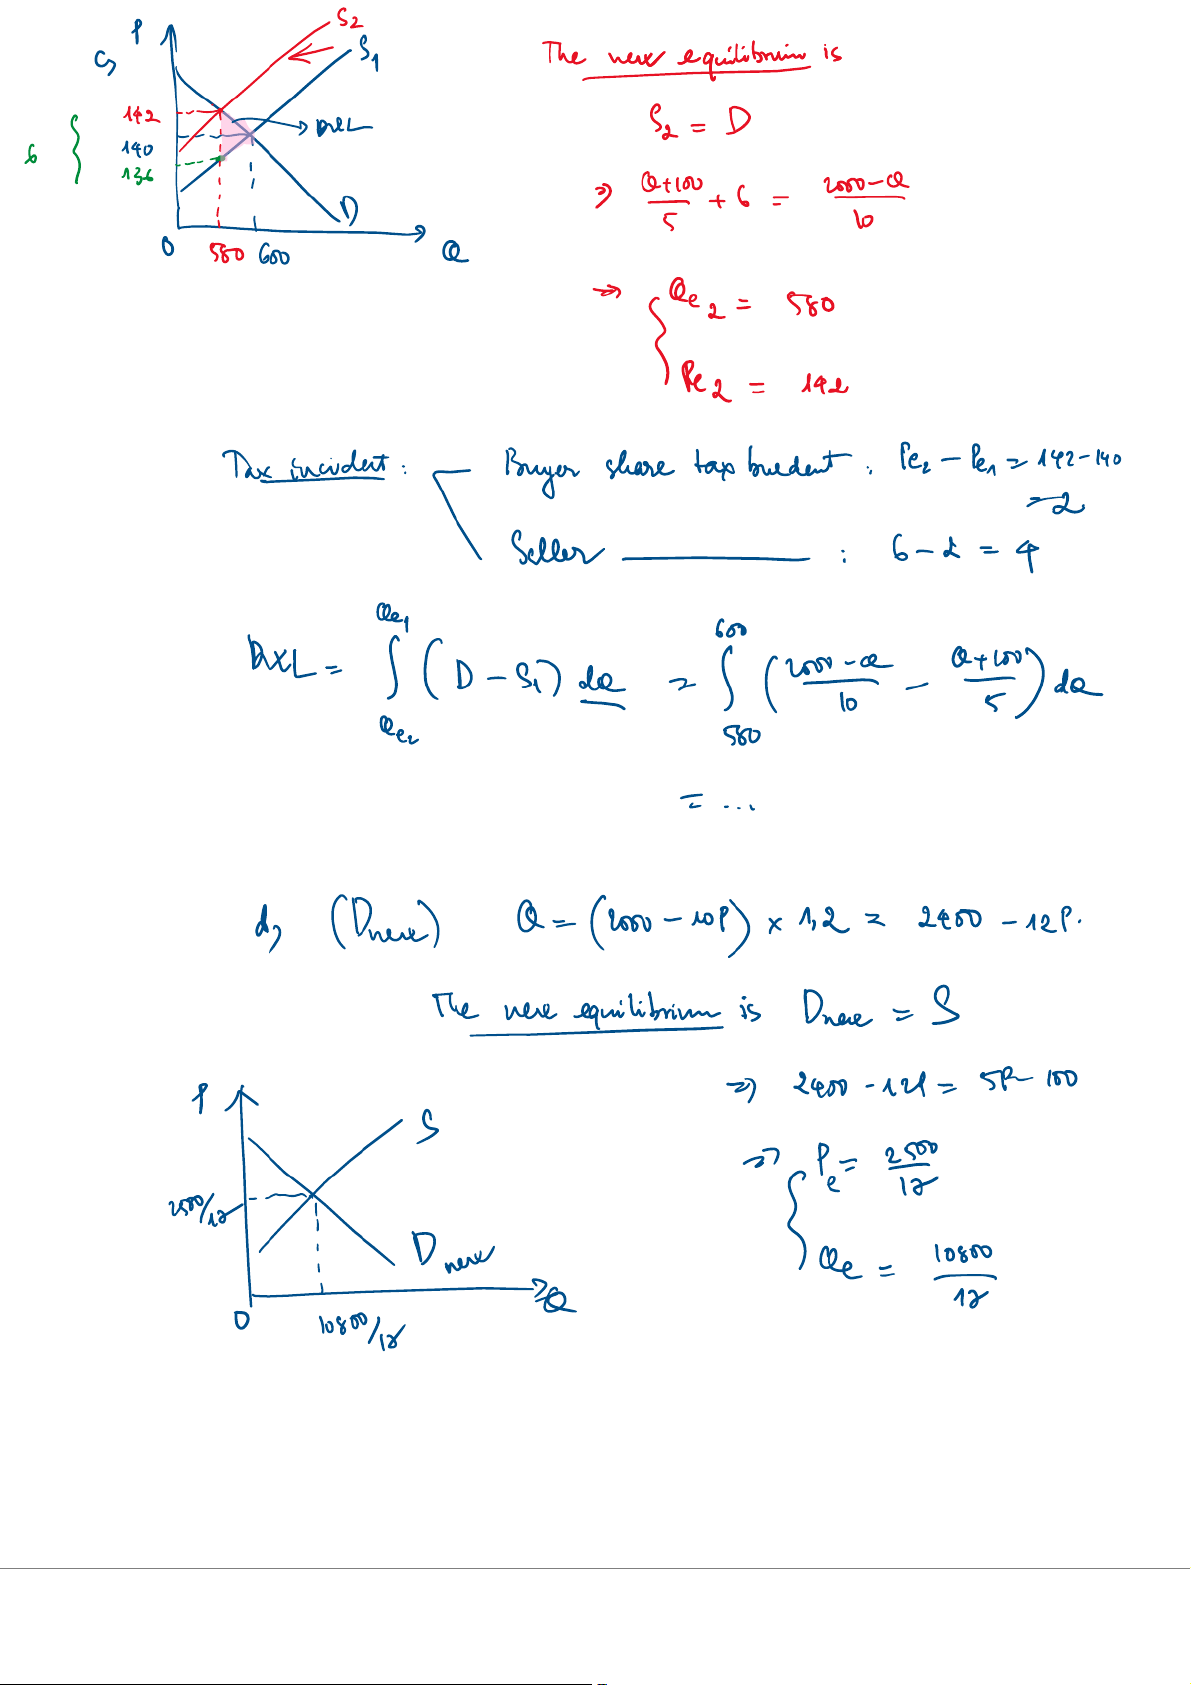 c,
P
S2
S1
142
140
136
6
DWL
D
0
580
600
Q
The new equilibrium is
S2 = D
=> (Q+100)/5 + 6 = (2000-Q)/10
=> { Qe2 = 580
Pe2 = 142
Tax incident : Buyer share tax burdent : Pe2 - Pe1 = 142-140
= 2
Seller ——— : 6 - 2 = 4
DWL = ∫ Qe2 Qe1 (D - S1) dQ = ∫ 580 600 ((2000-Q)/10 - (Q+100)/5) dQ
= ...
d, (Dnew) Q = (2000 - 10P) × 1,2 = 2400 - 12P.
The new equilibrium is Dnew = S
=> 2400 - 12P = 5P - 100
=> { Pe = 2500/17
Qe = 10800/17
P
S
2500/17
Dnew
0
10800/17
Q